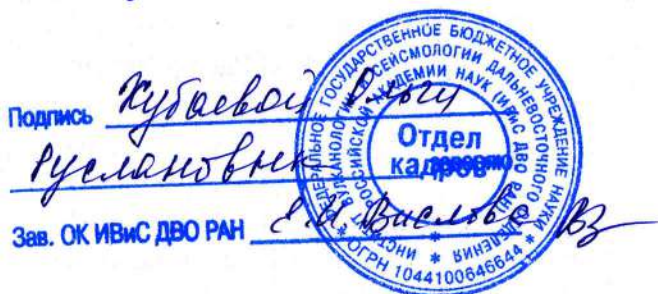 Подпись Хубаевой Ольги
Руслановны заверяю
Зав. ОК ИВиС ДВО РАН
ФЕДЕРАЛЬНОЕ ГОСУДАРСТВЕННОЕ БЮДЖЕТНОЕ УЧРЕЖДЕНИЕ НАУКИ *
ИНСТИТУТ ВУЛКАНОЛОГИИ И СЕЙСМОЛОГИИ ДАЛЬНЕВОСТОЧНОГО ОТДЕЛЕНИЯ
РОССИЙСКОЙ АКАДЕМИИ НАУК (ИВиС ДВО РАН)
* ОГРН 1044100646644 *
Отдел
кадров